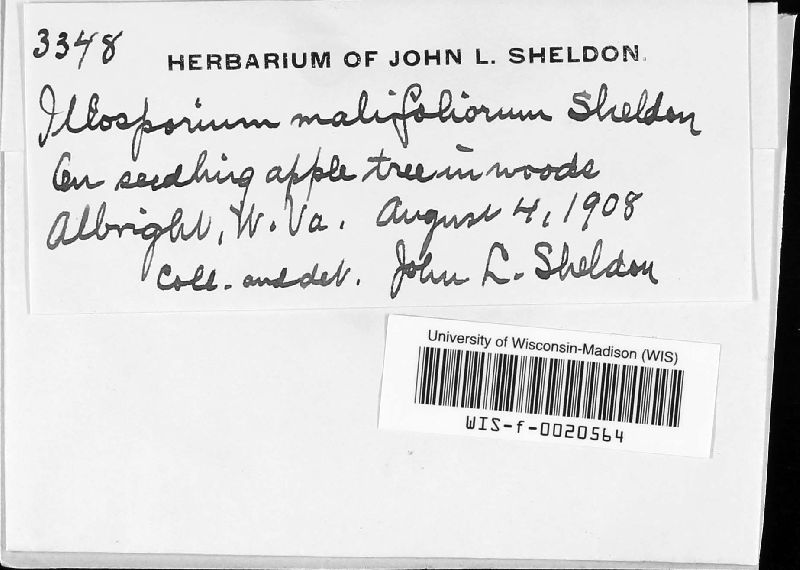 3348
HERBARIUM OF JOHN L. SHELDON.
Illosporium malifoliorum Sheldon
On seedling apple tree in woods
Albright, W. Va. August 4, 1908
Coll. and det. John L. Sheldon
University of Wisconsin-Madison (WIS)
WIS-f-0020564